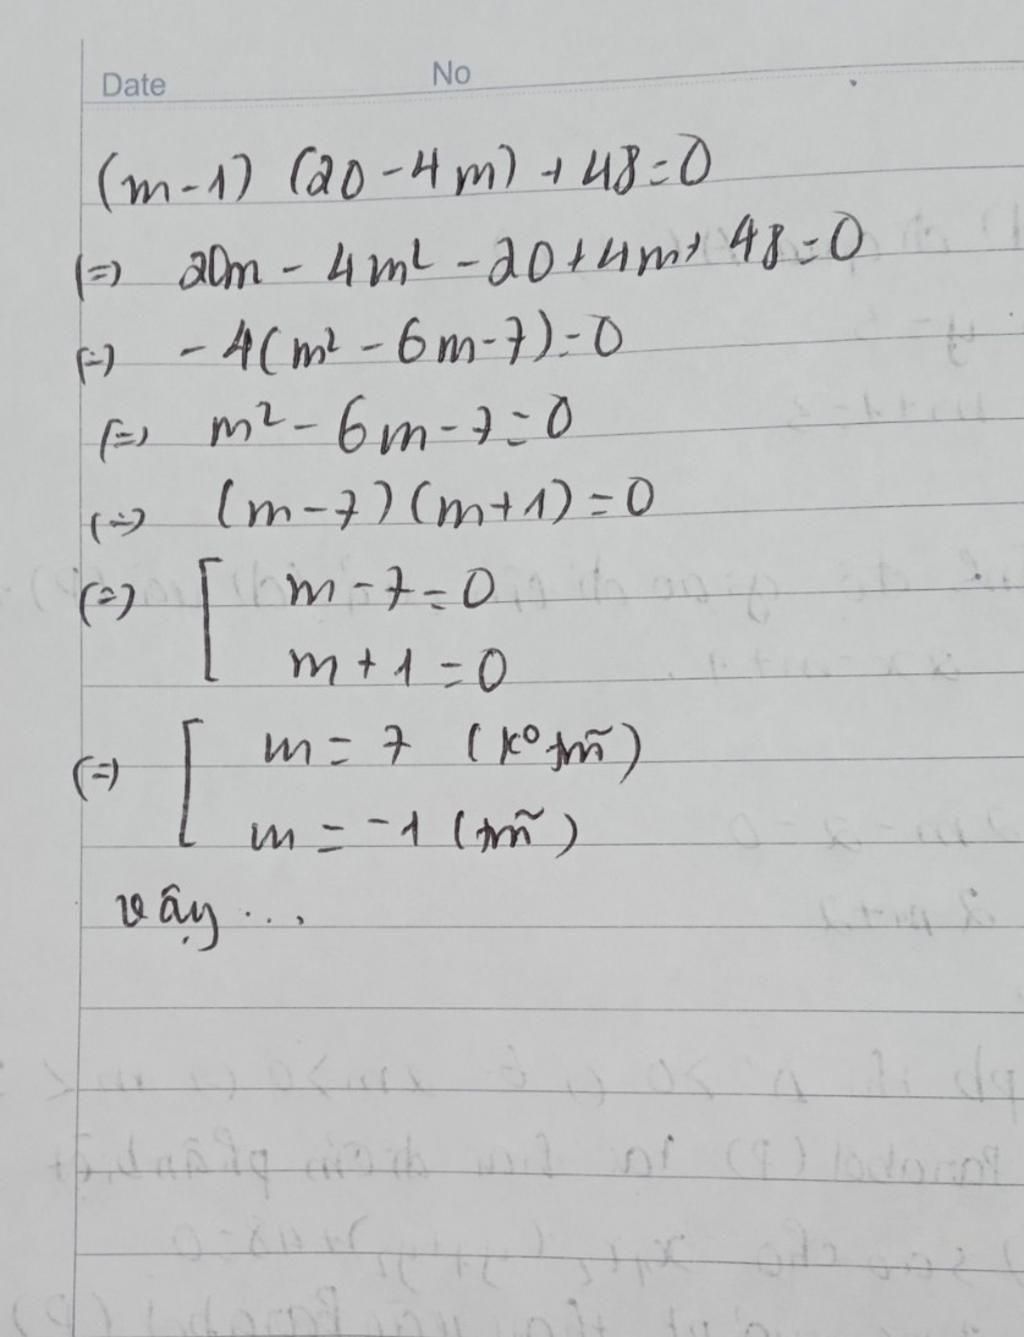 Date No
(m-1) (20-4m) + 48=0
(=) 20m - 4m² - 20+4m+ 48=0
(=) -4(m² - 6m-7)=0
(=) m² - 6m-7=0
(=) (m-7)(m+1)=0
(=) [ m-7=0
m+1=0
(=) [ m = 7 (k° tmñ)
m = -1 (tmñ)
vậy ...